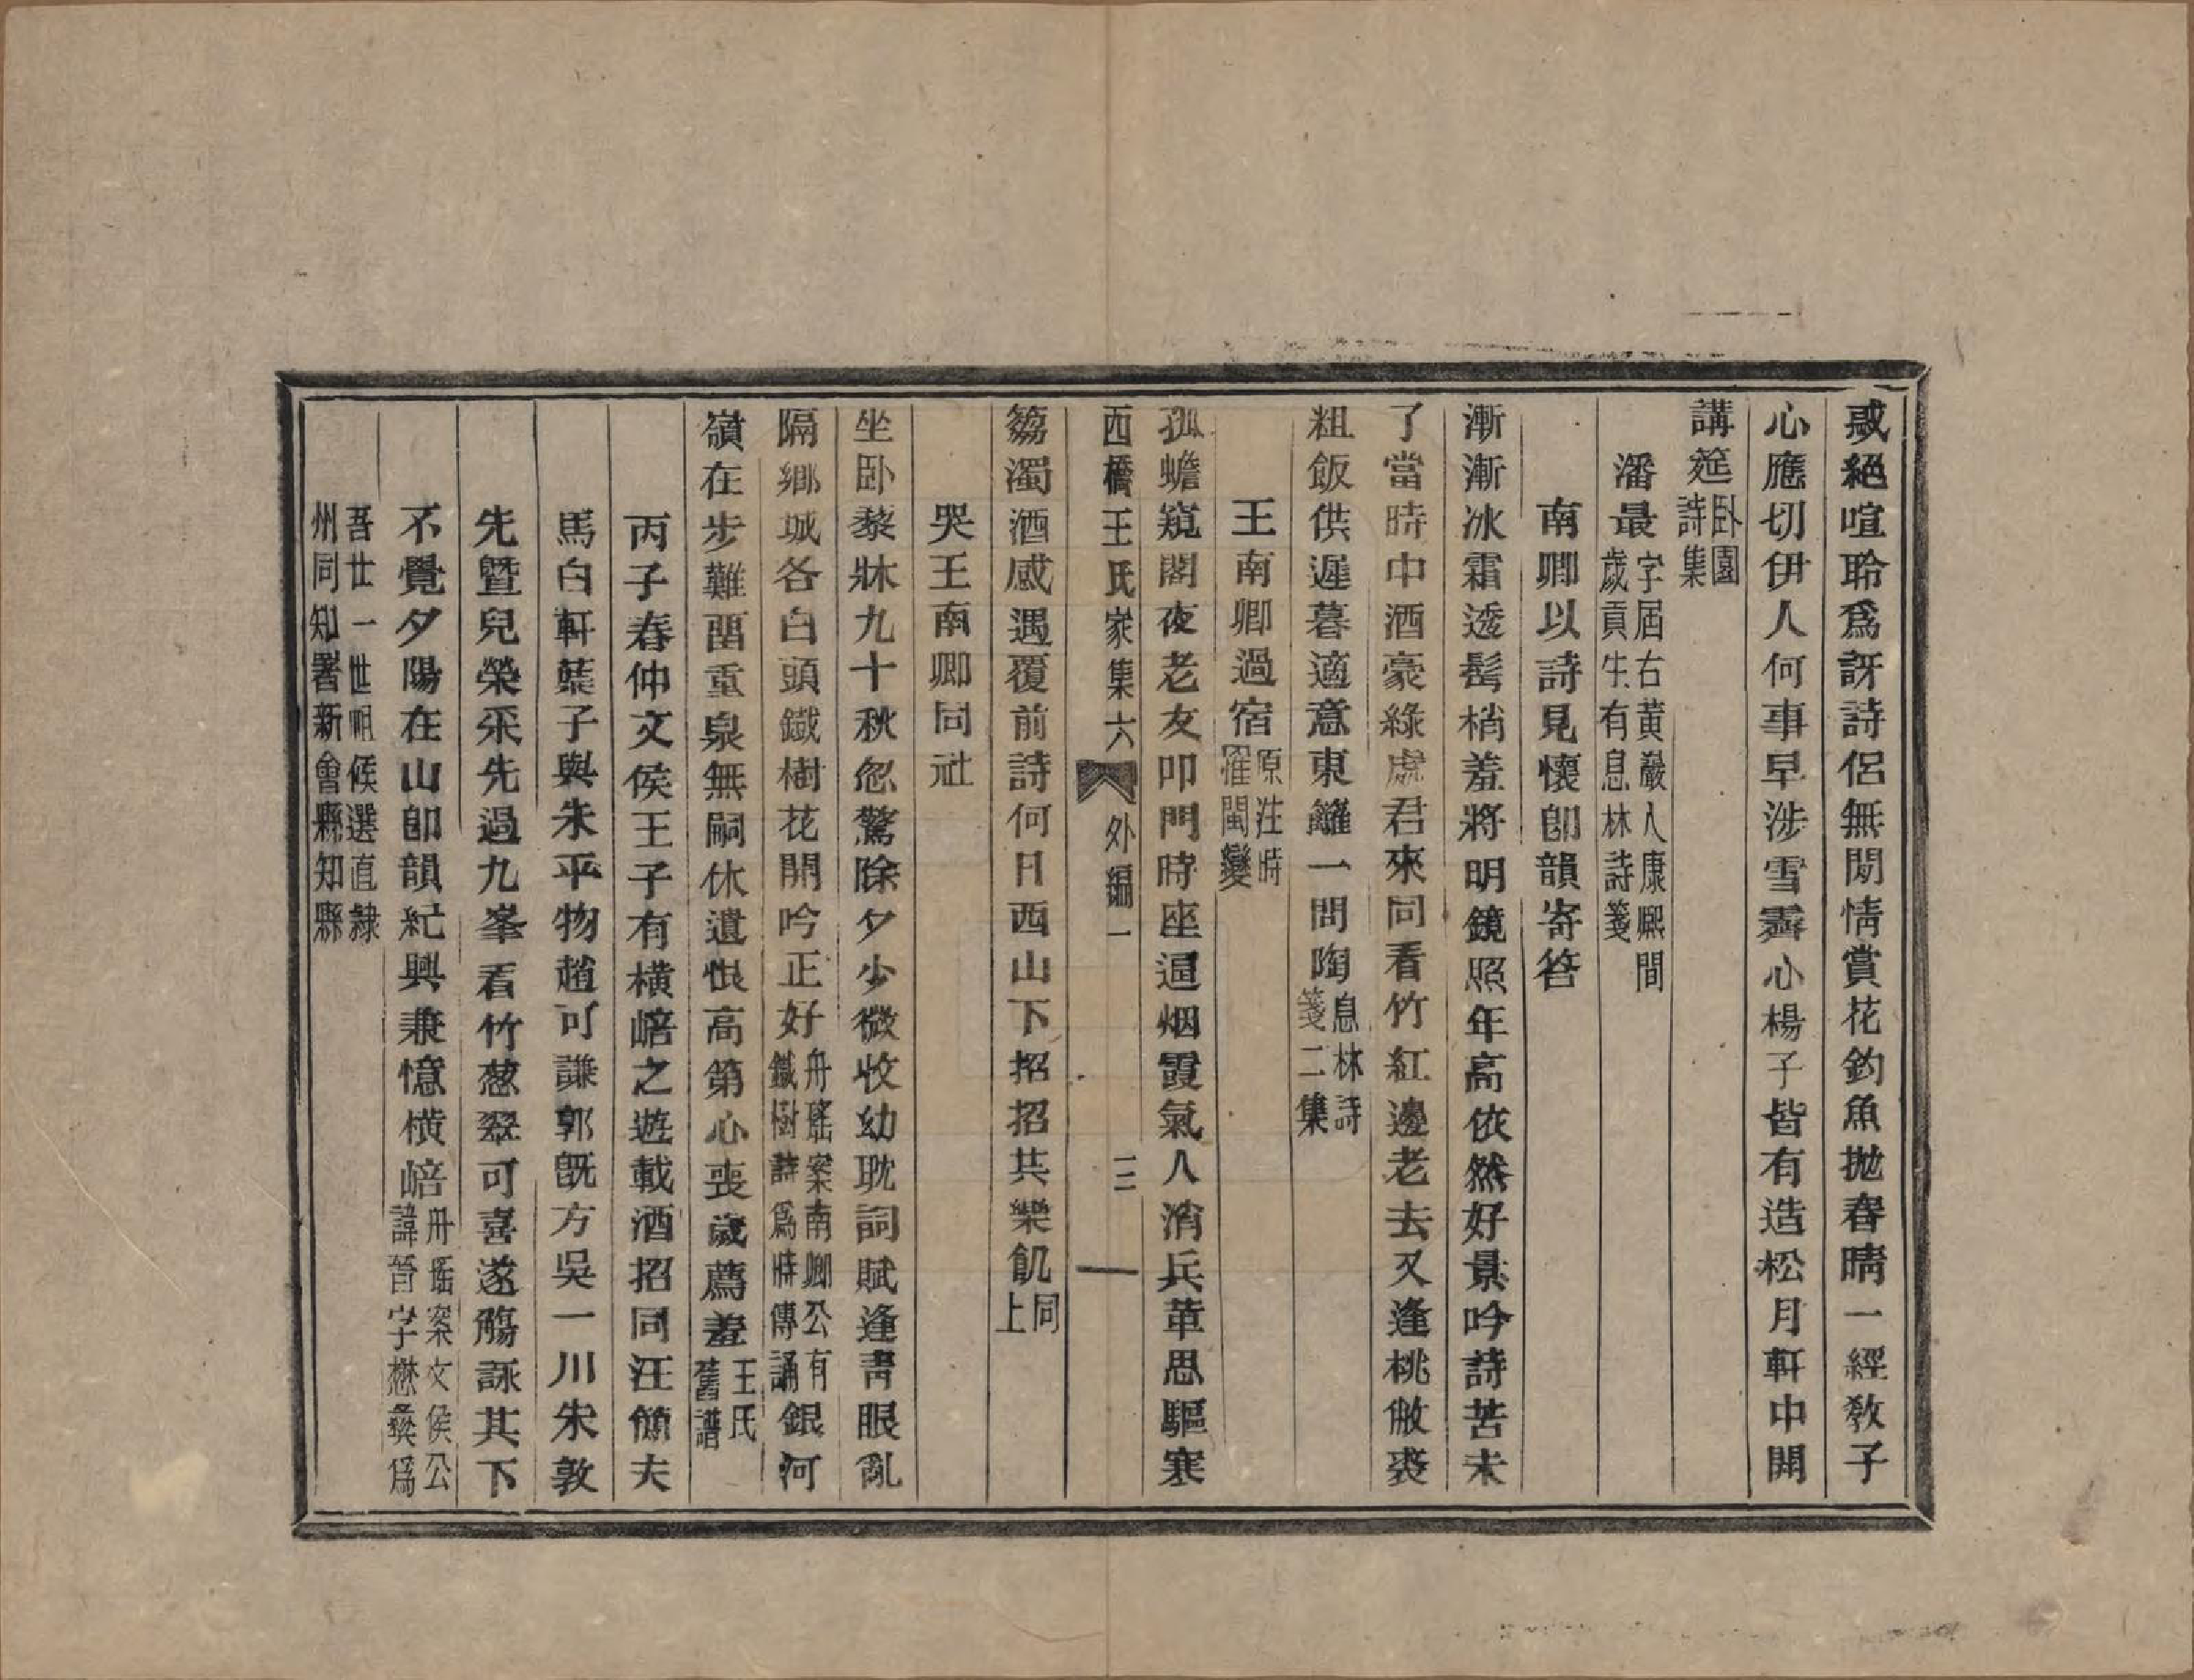 感絕喧聆爲訝詩侶無閒情賞花釣魚拋春晴一經敎子
心應切伊人何事早涉雪霽心楊子皆有造松月軒中開
講筵臥園詩集
潘最字屆右黃巖人康熙間歲貢生有息林詩箋
南卿以詩見懷卽韻寄答
漸漸冰霜透髩梢羞將明鏡照年高依然好景吟詩苦未
了當時中酒豪綠處君來同看竹紅邊老去又逢桃敝裘
粗飯供遲暮適意東籬一問陶息林詩箋二集
王南卿過宿原注時罹閩變
孤蟾窺閣夜老友叩門時座逥烟霞氣人消兵革思驅寒
西橋王氏家集六 外編一 三
芻濁酒感遇覆前詩何日西山下招招共樂飢同上
哭王南卿同社
坐臥藜牀九十秋忽驚除夕少微收幼耽詞賦逢靑眼亂
隔鄉城各白頭鐵樹花開吟正好舟瑤案南卿公有鐵樹詩爲時傳誦銀河
嶺在步難畱重泉無嗣休遺恨高第心喪歲薦羞王氏舊譜
丙子春仲文侯王子有橫㟁之遊載酒招同汪簡夫
馬白軒葉子與朱平物趙可謙郭旣方吳一川朱敦
先曁兒榮采先過九峯看竹葱翠可喜遂觴詠其下
不覺夕陽在山卽韻紀興兼憶橫㟁舟瑤案文侯公諱晉字懋彝爲
吾廿一世祖候選直隸州同知署新會縣知縣